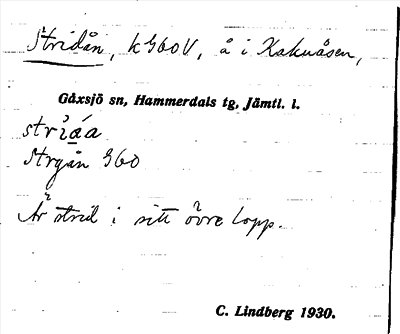 Stridån, k G60V, å i Kakuåsen,
Gåxsjö sn, Hammerdals tg, Jämtl. l.
Strgån G60
Är strid i sitt övre lopp.
C. Lindberg 1930.